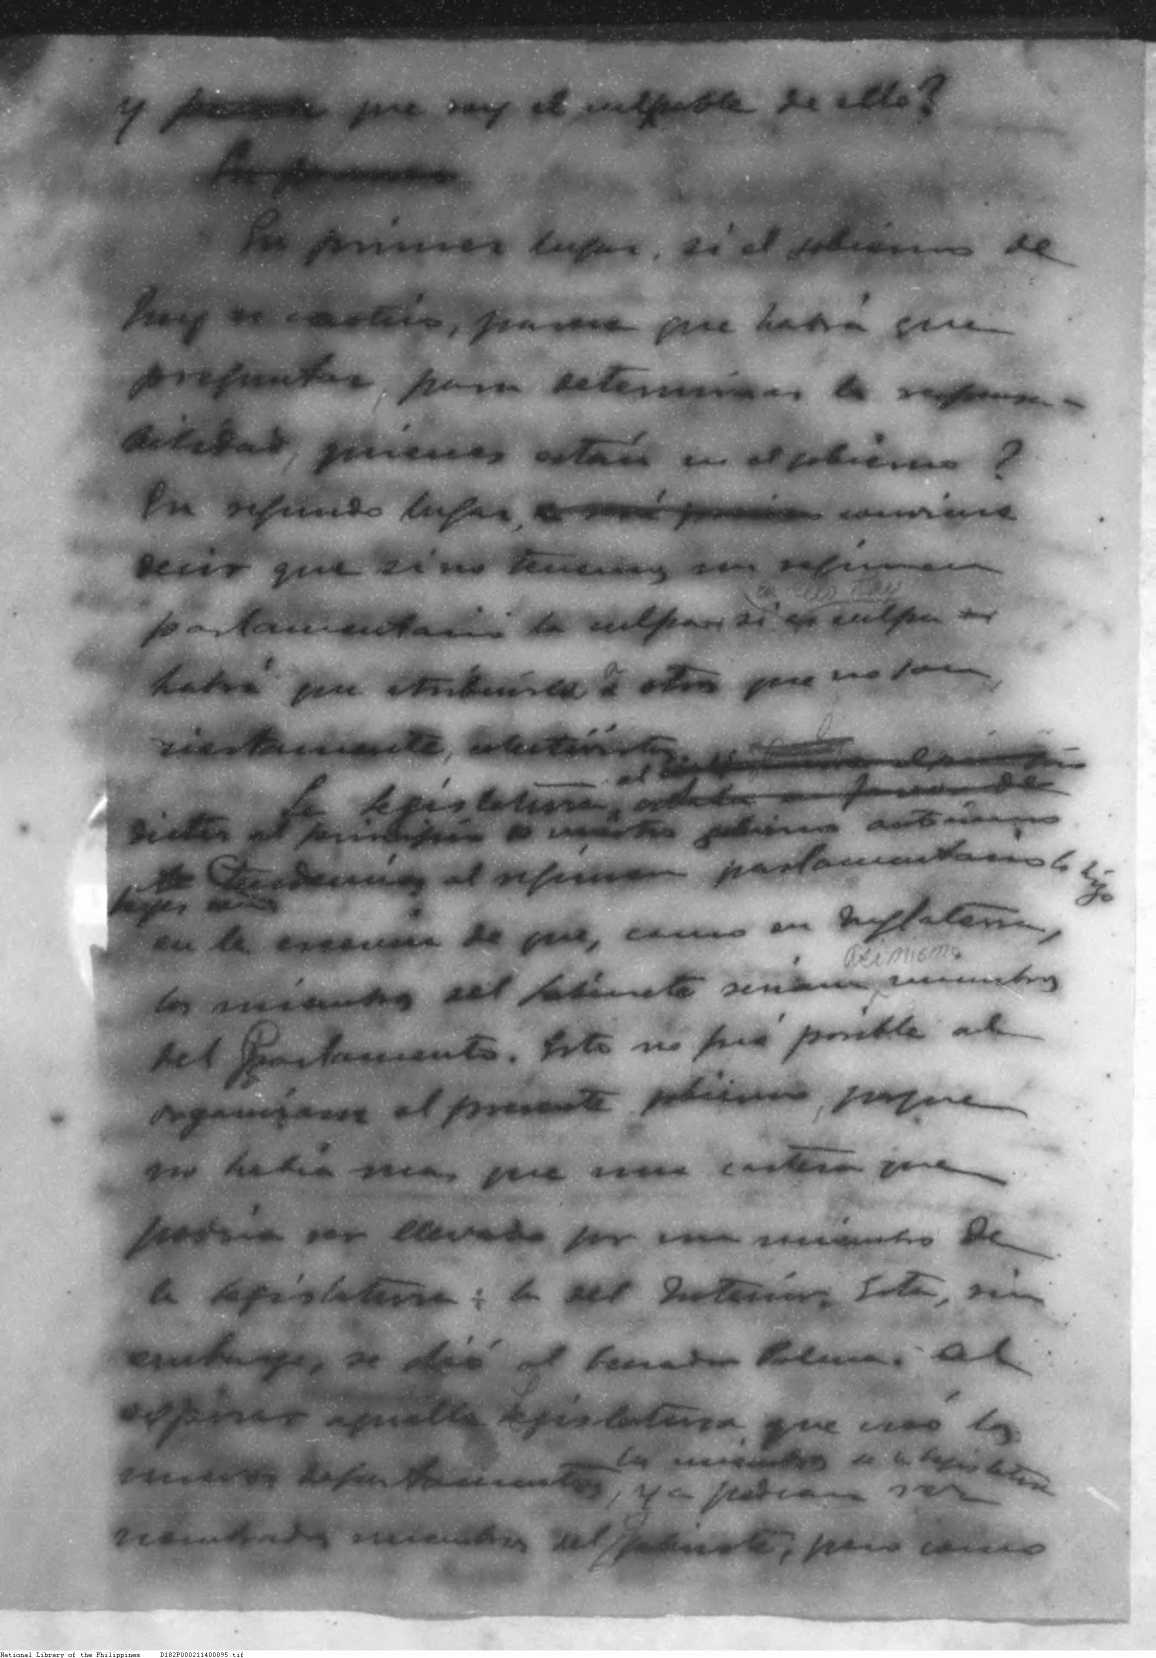 y que soy el culpable de ello?
En primer lugar, si el gobierno de
hoy es caótico, parece que habrá que
preguntar, para determinar la respon-
sabilidad, quiénes están en el gobierno?
En segundo lugar, conviene
decir que si no tenemos un régimen
parlamentario la culpa si es culpa
habrá que atribuirla á otros que no son,
ciertamente, colectivistas
La legislatura, al
dictar al principio de nuestro gobierno autónomo
leyes tendencias al régimen parlamentario lo hizo
en la creencia de que, como en Inglaterra,
asimismo
los miembros del gabinete serían miembros
del Parlamento. Esto no fué posible al
organizarse el presente gobierno, porque
no había mas que una cartera que
podría ser llevada por un miembro de
la legislatura: la del Interior. Esta, sin
embargo, se dió al senador Palma. Al
expirar aquella legislatura que creó los
los miembros de la legislatura
nuevos departamentos, ya podian ser
nombrados miembros del gabinete, pero como
National Library of the Philippines D182P000211400095.tif